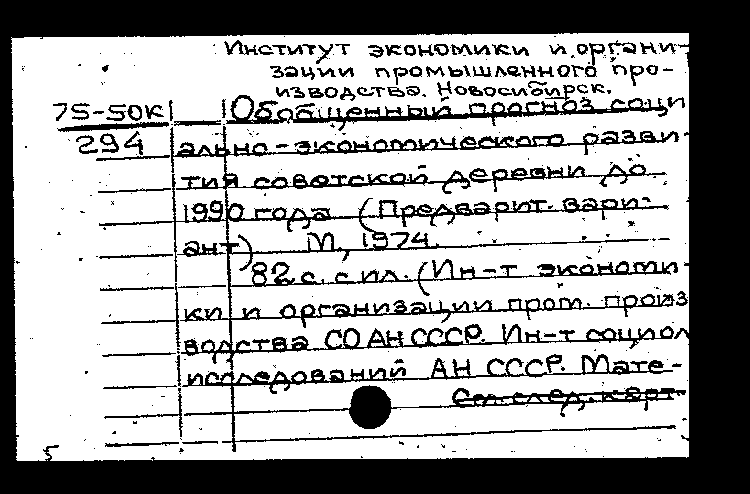 Институт экономики и органи-
зации промышленного про-
изводства. Новосибирск.
75-50К Обобщенный прогноз соци
294 ально-экономического разви-
тия советской деревни до
1990 года (Предварит. вари-
ант) М., 1974.
82 с. с ил. (Ин-т экономи-
ки и организации пром. произ
водства СО АН СССР. Ин-т социол
исследований АН СССР. Мате-
См. след. карт
5